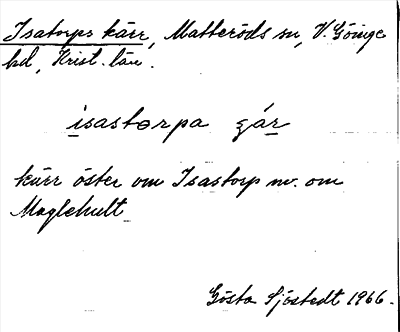 Isatorps kärr, Matteröds sn, V. Göinge
hd, Krist. län.
isastorpa çár
kärr öster om Isastorp nv. om
Maglehult
Gösta Sjöstedt 1966.